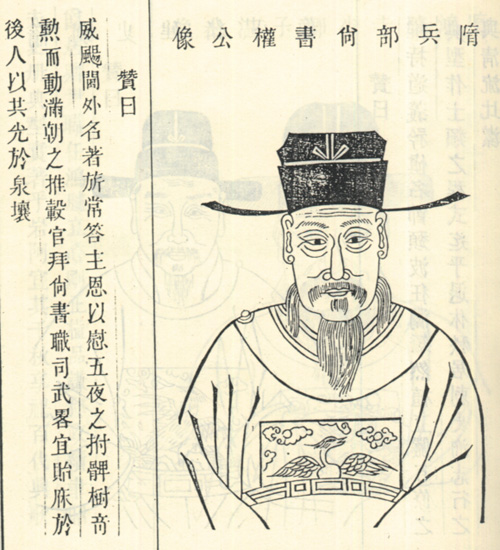 隋兵部尙書權公像
贊曰
威颺閫外名著旂常答主恩以慰五夜之拊髀樹竒
勲而動滿朝之推轂官拜尙書職司武畧宜貽庥於
後人以共光於泉壤